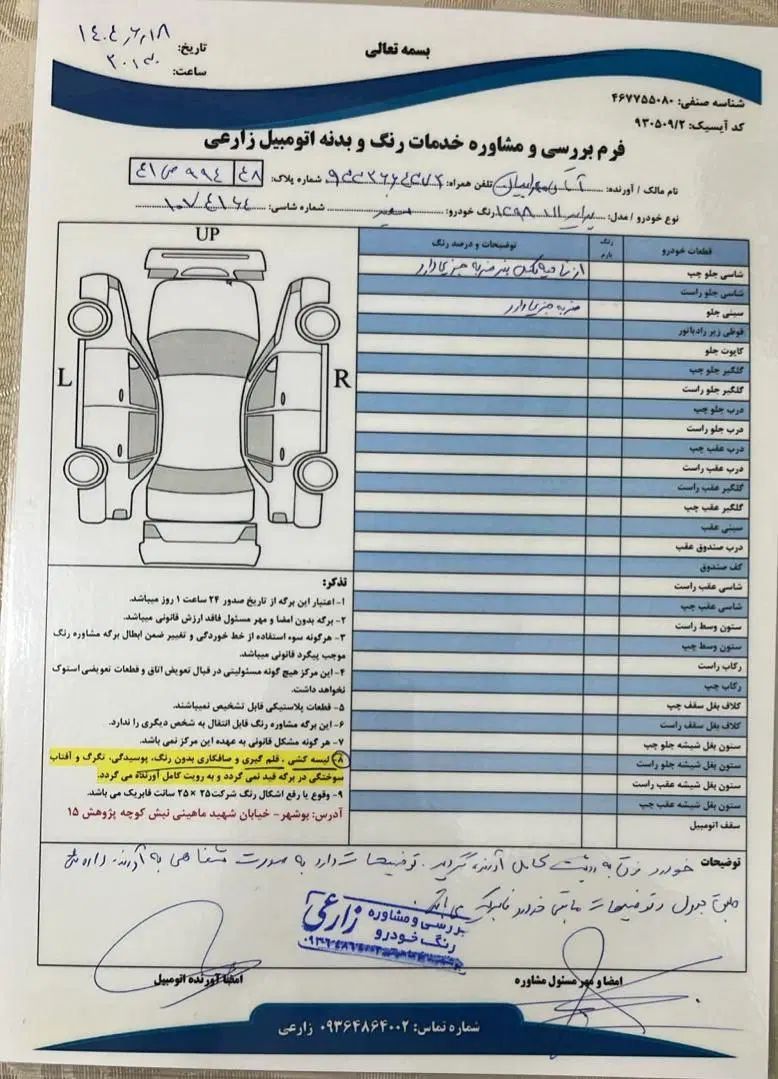 بسمه تعالی
تاریخ: ۱۴۰۴٫۶٫۱۸
ساعت: ۲۰٫۲۰
شناسه صنفی: ۴۶۷۷۵۵۰۸۰
کد آیسیک: ۹۳۰۵۰۹/۲
فرم بررسی و مشاوره خدمات رنگ و بدنه اتومبیل زارعی
نام مالک / آورنده: آقای تلفن همراه: شماره پلاک: ۴۸ ۹۹۴ ص ۴۱
نوع خودرو / مدل: رنگ خودرو: سفید شماره شاسی: ۱۰۷۴۱۶۴
قطعات خودرو
رنگ دارد
توضیحات و درصد رنگ
شاسی جلو چپ جزیی دارد
شاسی جلو راست
سینی جلو ضربه جزیی دارد
قوطی زیر رادیاتور
کاپوت جلو
گلگیر جلو چپ
گلگیر جلو راست
درب جلو چپ
درب جلو راست
درب عقب چپ
درب عقب راست
گلگیر عقب راست
گلگیر عقب چپ
سینی عقب
درب صندوق عقب
کف صندوق
شاسی عقب راست
شاسی عقب چپ
ستون وسط راست
ستون وسط چپ
رکاب راست
رکاب چپ
کلاف بغل سقف چپ
کلاف بغل سقف راست
ستون بغل شیشه جلو چپ
ستون بغل شیشه جلو راست
ستون بغل شیشه عقب راست
ستون بغل شیشه عقب چپ
سقف اتومبیل
UP
L
R
تذکر:
۱- اعتبار این برگه از تاریخ صدور ۲۴ ساعت ۱ روز میباشد.
۲- برگه بدون امضا و مهر مسئول فاقد ارزش قانونی میباشد.
۳- هرگونه سوء استفاده از خط خوردگی و تغییر ضمن ابطال برگه مشاوره رنگ
موجب پیگرد قانونی میباشد.
۴- این مرکز هیچ گونه مسئولیتی در قبال تعویض اتاق و قطعات تعویضی استوک
نخواهد داشت.
۵- قطعات پلاستیکی قابل تشخیص نمیباشند.
۶- این برگه مشاوره رنگ قابل انتقال به شخص دیگری را ندارد.
۷- هر گونه مشکل قانونی به عهده این مرکز نمی باشد.
۸- لیسه کشی ، قلم گیری و صافکاری بدون رنگ، پوسیدگی، تگرگ و آفتاب
سوختگی در برگه قید نمی گردد و به رویت کامل آورنده می گردد.
۹- وقوع یا رفع اشکال رنگ شرکت ۲۵ × ۲۵ سانت فابریک می باشد.
آدرس: بوشهر- خیابان شهید ماهینی نبش کوچه پژوهش ۱۵
توضیحات خودرو فوق به رویت کامل آورنده گردید. توضیحات دارد به صورت شفاهی به آورنده داده شد
طبق جدول و توضیحات مابقی خودرو فابریک می باشد.
بررسی و مشاوره
رنگ خودرو
زارعی
امضا و مهر مسئول مشاوره
امضا آورنده اتومبیل
شماره تماس: ۰۹۳۶۴۸۶۴۰۰۲ زارعی